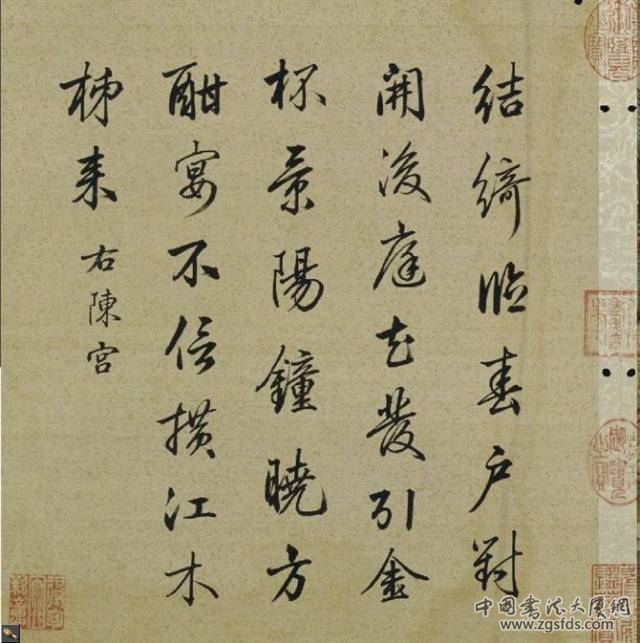 結綺臨春戶對
開後庭花發引金
杯景陽鐘曉方
酣宴不信橫江木
柹来
右陳宮
中國書法大厦網
www.zgsfds.com